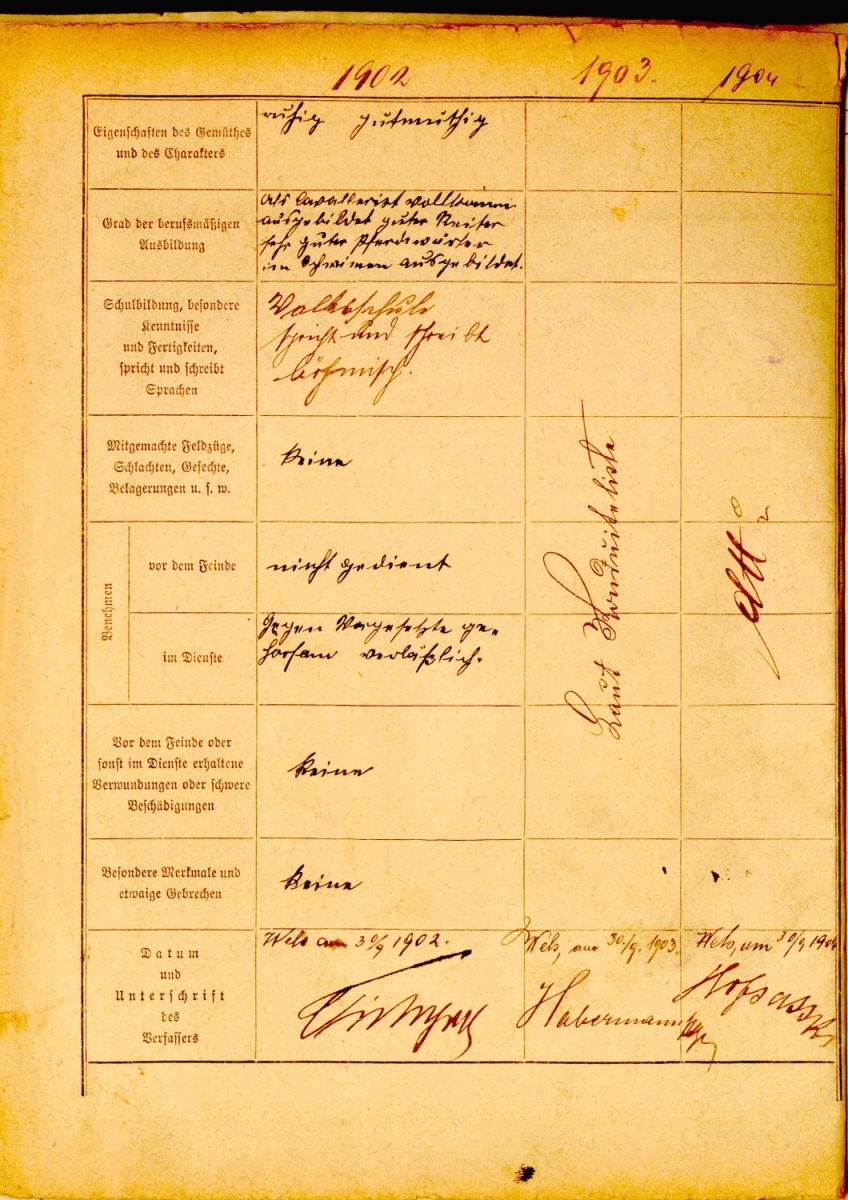 1902 1903. 1904
Eigenschaften des Gemüthes
und des Charakters
ruhig gutmüthig
Grad der berufsmäßigen
Ausbildung
als Cavallerist vollkomen
ausgebildet guter Reiter
sehr guter Pferdewärter
im Schwimen ausgebildet.
Schulbildung, besondere
Kenntnisse
und Fertigkeiten,
spricht und schreibt
Sprachen
Volksschule
spricht und schreibt
böhmisch.
Mitgemachte Feldzüge,
Schlachten, Gefechte,
Belagerungen u. s. w.
keine
Benehmen
vor dem Feinde
nicht gedient
im Dienste
Gegen Vorgesetzte ge-
horsam verläßlich.
Vor dem Feinde oder
sonst im Dienste erhaltene
Verwundungen oder schwere
Beschädigungen
keine
Besondere Merkmale und
etwaige Gebrechen
keine
Laut Conduiteliste
Datum
und
Unterschrift
des
Verfassers
Wels am 30/9 1902.
Wels, am 30./9. 1903.
Habermann
Wels, am 30/9 1904